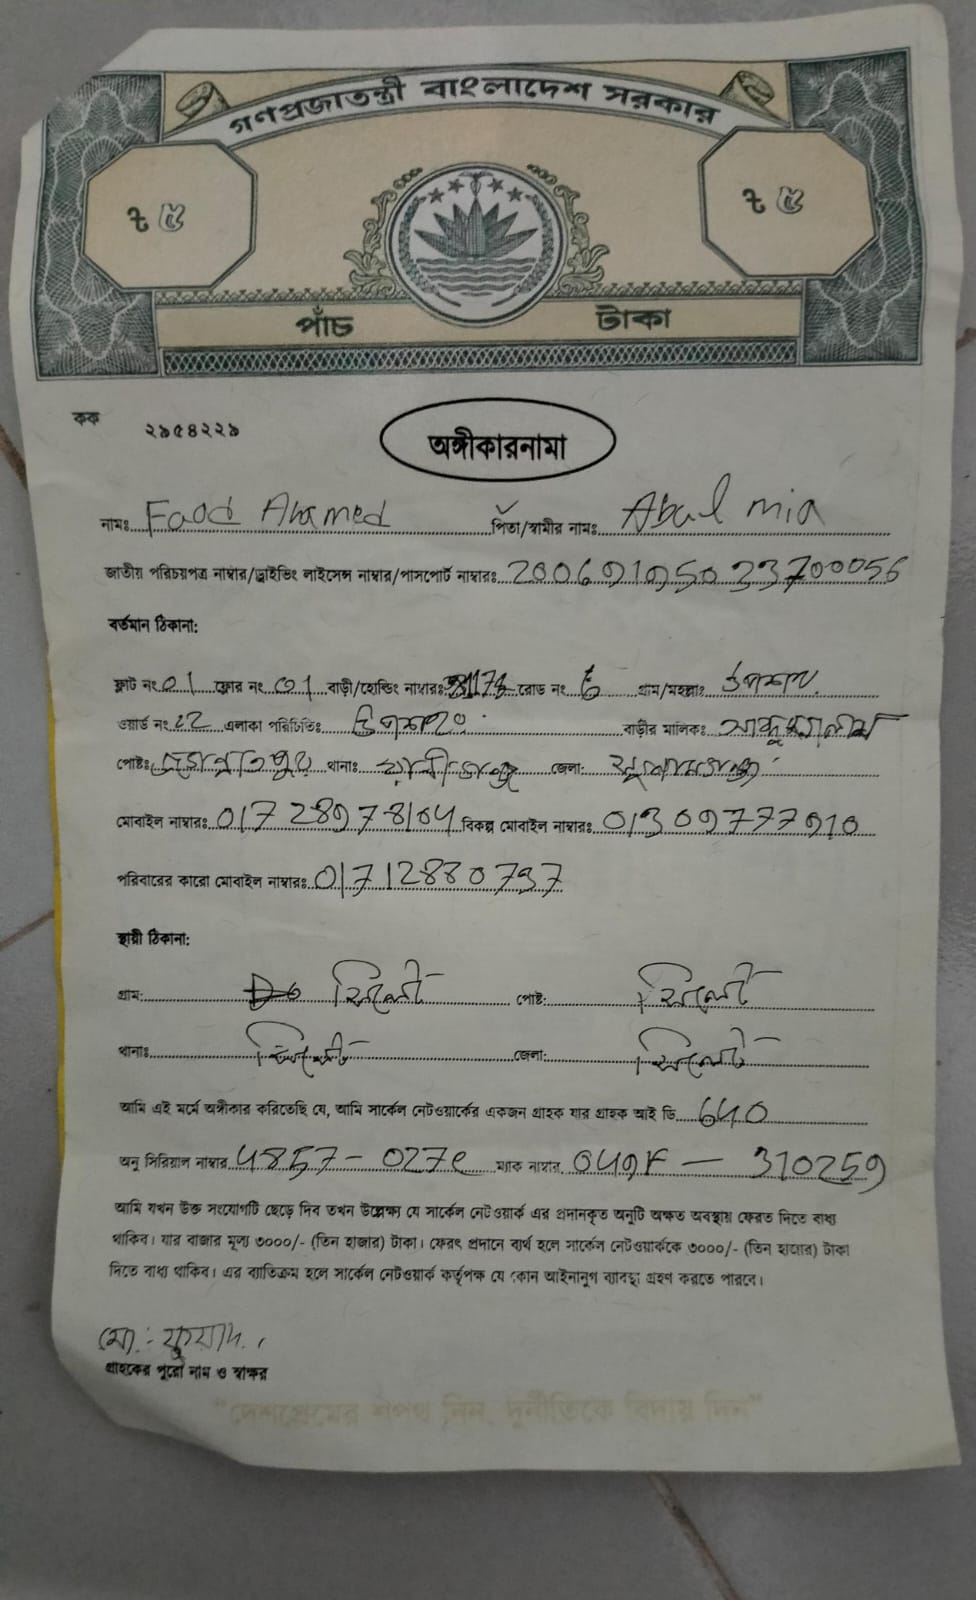 গণপ্রজাতন্ত্রী বাংলাদেশ সরকার
৳ ৫ ৳ ৫
পাঁচ টাকা
কক ২৯৫৪২২৯
অঙ্গীকারনামা
নামঃ Faod Ahamed পিতা/স্বামীর নামঃ Abul mia
জাতীয় পরিচয়পত্র নাম্বার/ড্রাইভিং লাইসেন্স নাম্বার/পাসপোর্ট নাম্বারঃ
বর্তমান ঠিকানা:
ফ্লাট নং 01 ফ্লোর নং 01 বাড়ী/হোল্ডিং নাম্বারঃ রোড নং 6 গ্রাম/মহল্লাঃ উপশহর
ওয়ার্ড নং 22 এলাকা পরিচিতিঃ উপশহর বাড়ীর মালিকঃ
পোষ্টঃ থানাঃ জেলাঃ
মোবাইল নাম্বারঃ 01728978104 বিকল্প মোবাইল নাম্বারঃ 01309777910
পরিবারের কারো মোবাইল নাম্বারঃ 01712880797
স্থায়ী ঠিকানা:
গ্রাম: সিলেট পোষ্ট: সিলেট
থানাঃ সিলেট জেলা: সিলেট
আমি এই মর্মে অঙ্গীকার করিতেছি যে, আমি সার্কেল নেটওয়ার্কের একজন গ্রাহক যার গ্রাহক আই ডি 640
অনু সিরিয়াল নাম্বার 4857-027e ম্যাক নাম্বার 049F - 310259
আমি যখন উক্ত সংযোগটি ছেড়ে দিব তখন উল্লেক্ষ্য যে সার্কেল নেটওয়ার্ক এর প্রদানকৃত অনুটি অক্ষত অবস্থায় ফেরত দিতে বাধ্য
থাকিব। যার বাজার মূল্য ৩০০০/- (তিন হাজার) টাকা। ফেরৎ প্রদানে ব্যর্থ হলে সার্কেল নেটওয়ার্ককে ৩০০০/- (তিন হাজার) টাকা
দিতে বাধ্য থাকিব। এর ব্যাতিক্রম হলে সার্কেল নেটওয়ার্ক কর্তৃপক্ষ যে কোন আইনানুগ ব্যাবস্থা গ্রহণ করতে পারবে।
মো: ফুয়াদ
গ্রাহকের পুরো নাম ও স্বাক্ষর
"দেশপ্রেমের শপথ নিন, দুর্নীতিকে বিদায় দিন"